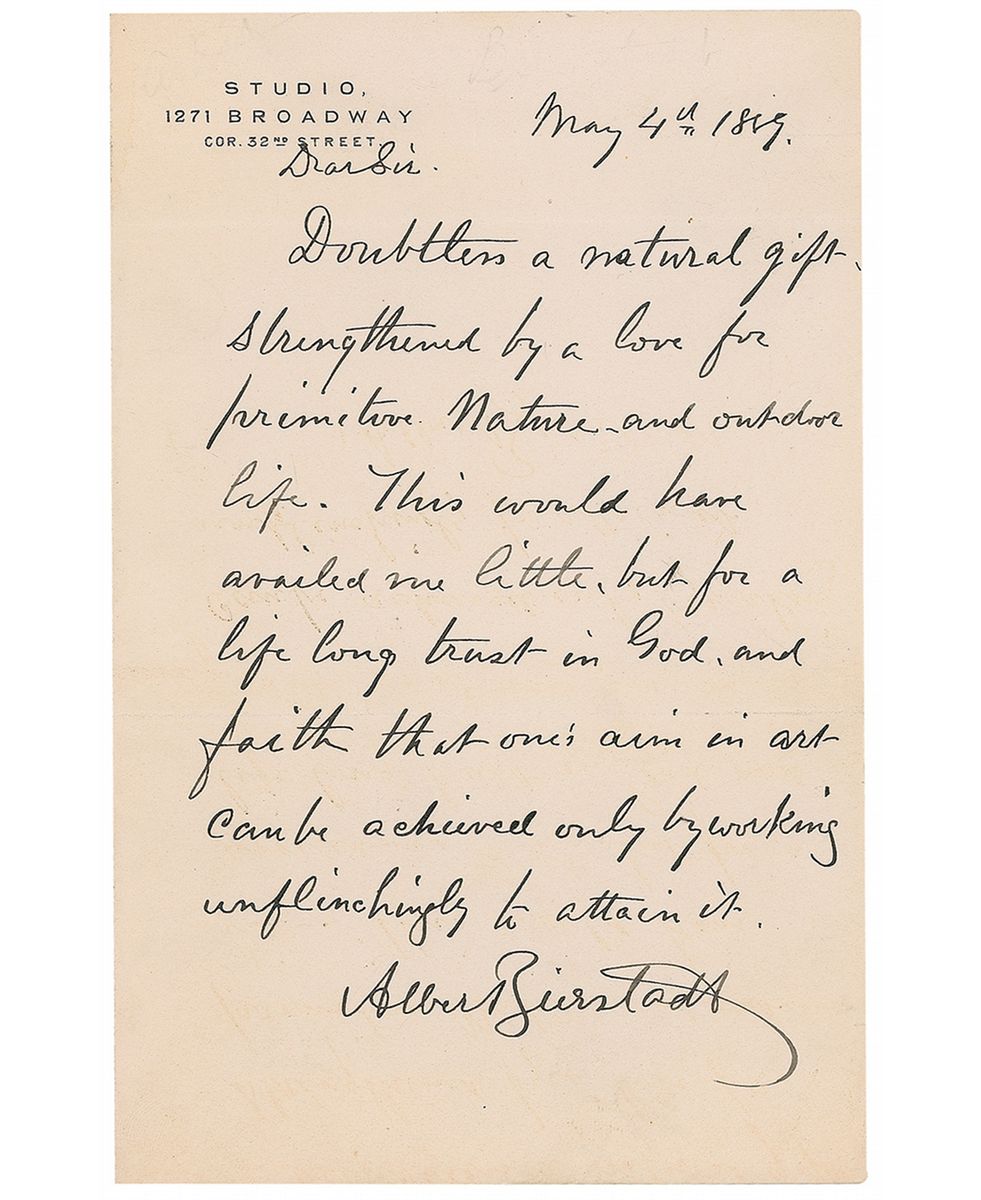 STUDIO,
1271 BROADWAY
COR. 32ND STREET.
May 4th 1889.
Dear Sir.
Doubtless a natural gift,
strengthened by a love for
primitive Nature and outdoor
life. This would have
availed me little, but for a
life long trust in God, and
faith that one's aim in art
can be achieved only by working
unflinchingly to attain it.
Albert Bierstadt